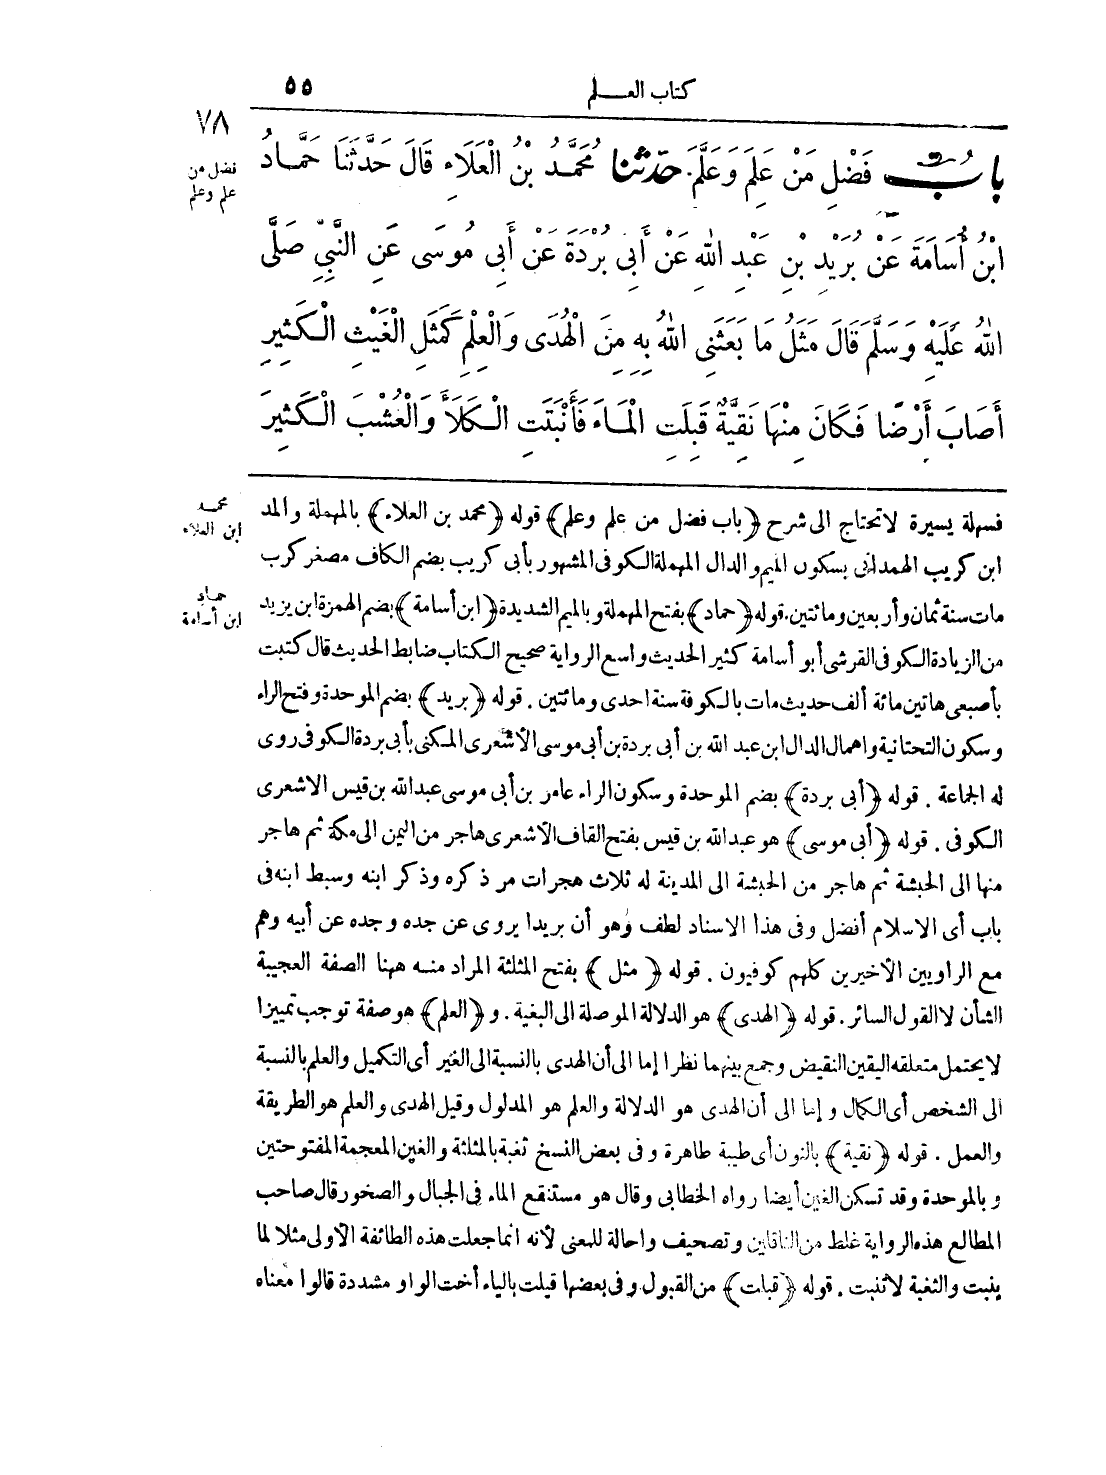 كتاب العلم ٥٥
٧٨
فضل من
علم وعلم
بابُ فَضْلِ مَنْ عَلِمَ وَعَلَّمَ. حدّثنا مُحَمَّدُ بْنُ الْعَلَاءِ قَالَ حَدَّثَنَا حَمَّادُ
ابْنُ أُسَامَةَ عَنْ بُرَيْدِ بْنِ عَبْدِ اللهِ عَنْ أَبِى بُرْدَةَ عَنْ أَبِى مُوسَى عَنِ النَّبِيِّ صَلَّى
اللهُ عَلَيْهِ وَسَلَّمَ قَالَ مَثَلُ مَا بَعَثَنِى اللهُ بِهِ مِنَ الْهُدَى وَالْعِلْمِ كَمَثَلِ الْغَيْثِ الْكَثِيرِ
أَصَابَ أَرْضًا فَكَانَ مِنْهَا نَقِيَّةٌ قَبِلَتِ الْمَاءَ فَأَنْبَتَتِ الْكَلَأَ وَالْعُشْبَ الْكَثِيرَ
محمد
ابن العلاء
حماد
ابن أسامة
فسهلة يسيرة لا تحتاج الى شرح ﴿باب فضل من علم وعلم﴾ قوله ﴿محمد بن العلاء﴾ بالمهملة والمد
ابن كريب الهمدانى بسكون الميم والدال المهملة الكوفى المشهور بأبى كريب بضم الكاف مصغر كرب
مات سنة ثمان وأربعين ومائتين. قوله ﴿حماد﴾ بفتح المهملة وبالميم الشديدة ﴿ابن أسامة﴾ بضم الهمزة ابن يزيد
من الزيادة الكوفى القرشى أبو أسامة كثير الحديث واسع الرواية صحيح الكتاب ضابط الحديث قال كتبت
بأصبعى هاتين مائة ألف حديث مات بالكوفة سنة احدى ومائتين . قوله ﴿بريد﴾ بضم الموحدة وفتح الراء
وسكون التحتانية واهمال الدال ابن عبد الله بن أبى بردة بن أبى موسى الأشعرى المكنى بأبى بردة الكوفى روى
له الجماعة . قوله ﴿أبى بردة﴾ بضم الموحدة وسكون الراء عامر بن أبى موسى عبد الله بن قيس الاشعرى
الكوفى . قوله ﴿أبى موسى﴾ هو عبد الله بن قيس بفتح القاف الأشعرى هاجر من اليمن الى مكة ثم هاجر
منها الى الحبشة ثم هاجر من الحبشة الى المدينة له ثلاث هجرات مر ذكره وذكر ابنه وسبط ابنه فى
باب أى الاسلام أفضل وفى هذا الاسناد لطف وهو أن بريدا يروى عن جده وجده عن أبيه وهم
مع الراويين الأخيرين كلهم كوفيون . قوله ﴿مثل﴾ بفتح المثلثة المراد منه ههنا الصفة العجيبة
الشأن لا القول السائر . قوله ﴿الهدى﴾ هو الدلالة الموصلة الى البغية . و ﴿العلم﴾ هو صفة توجب تمييزا
لا يحتمل متعلقه اليقين النقيض وجمع بينهما نظرا إما الى أن الهدى بالنسبة الى الغير أى التكميل والعلم بالنسبة
الى الشخص أى الكمال وإما الى أن الهدى هو الدلالة والعلم هو المدلول وقيل الهدى والعلم هو الطريقة
والعمل . قوله ﴿نقية﴾ بالنون أى طيبة طاهرة وفى بعض النسخ ثغبة بالمثلثة والغين المعجمة المفتوحتين
وبالموحدة وقد تسكن الغين أيضا رواه الخطابى وقال هو مستنقع الماء فى الجبال والصخور قال صاحب
المطالع هذه الرواية غلط من الناقلين وتصحيف واحالة للمعنى لأنه انما جعلت هذه الطائفة الأولى مثلا لما
ينبت والثغبة لا تنبت . قوله ﴿قبلت﴾ من القبول وفى بعضها قيلت بالياء أخت الواو مشددة قالوا معناه